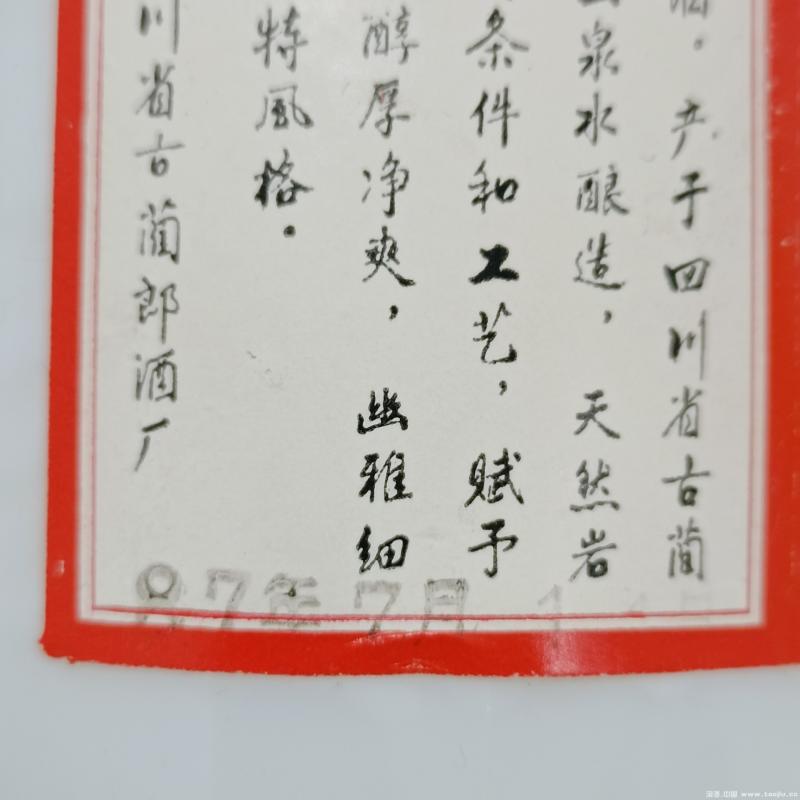 酒。产于四川省古蔺
泉水酿造，天然岩
条件和工艺，赋予
醇厚净爽，幽雅细
特風格.
川省古蔺郎酒厂
87年7月1
www.taojiu.cn